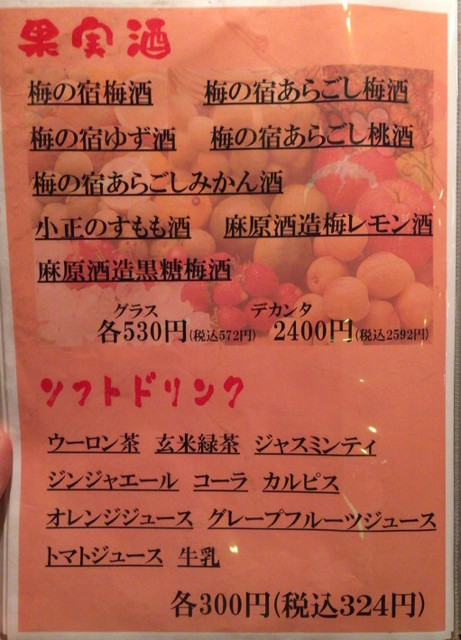 果実酒
梅の宿梅酒 梅の宿あらごし梅酒
梅の宿ゆず酒 梅の宿あらごし桃酒
梅の宿あらごしみかん酒
小正のすもも酒 麻原酒造梅レモン酒
麻原酒造黒糖梅酒
グラス デカンタ
各530円(税込572円) 2400円(税込2592円)
ソフトドリンク
ウーロン茶 玄米緑茶 ジャスミンティ
ジンジャエール コーラ カルピス
オレンジジュース グレープフルーツジュース
トマトジュース 牛乳
各300円(税込324円)